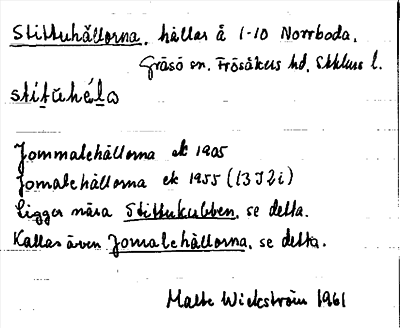 Stittuhällorna, hällar å 1-10 Norrboda,
Gräsö sn, Frösåkers hd, Sthlms l.
stítŭhéḷa
Jommalehällorna ek 1905
Jomalehällorna ek 1955 (13I2i)
Ligger nära Stittukubben, se detta.
Kallas även Jomalehällorna, se detta.
Malte Wickström 1961